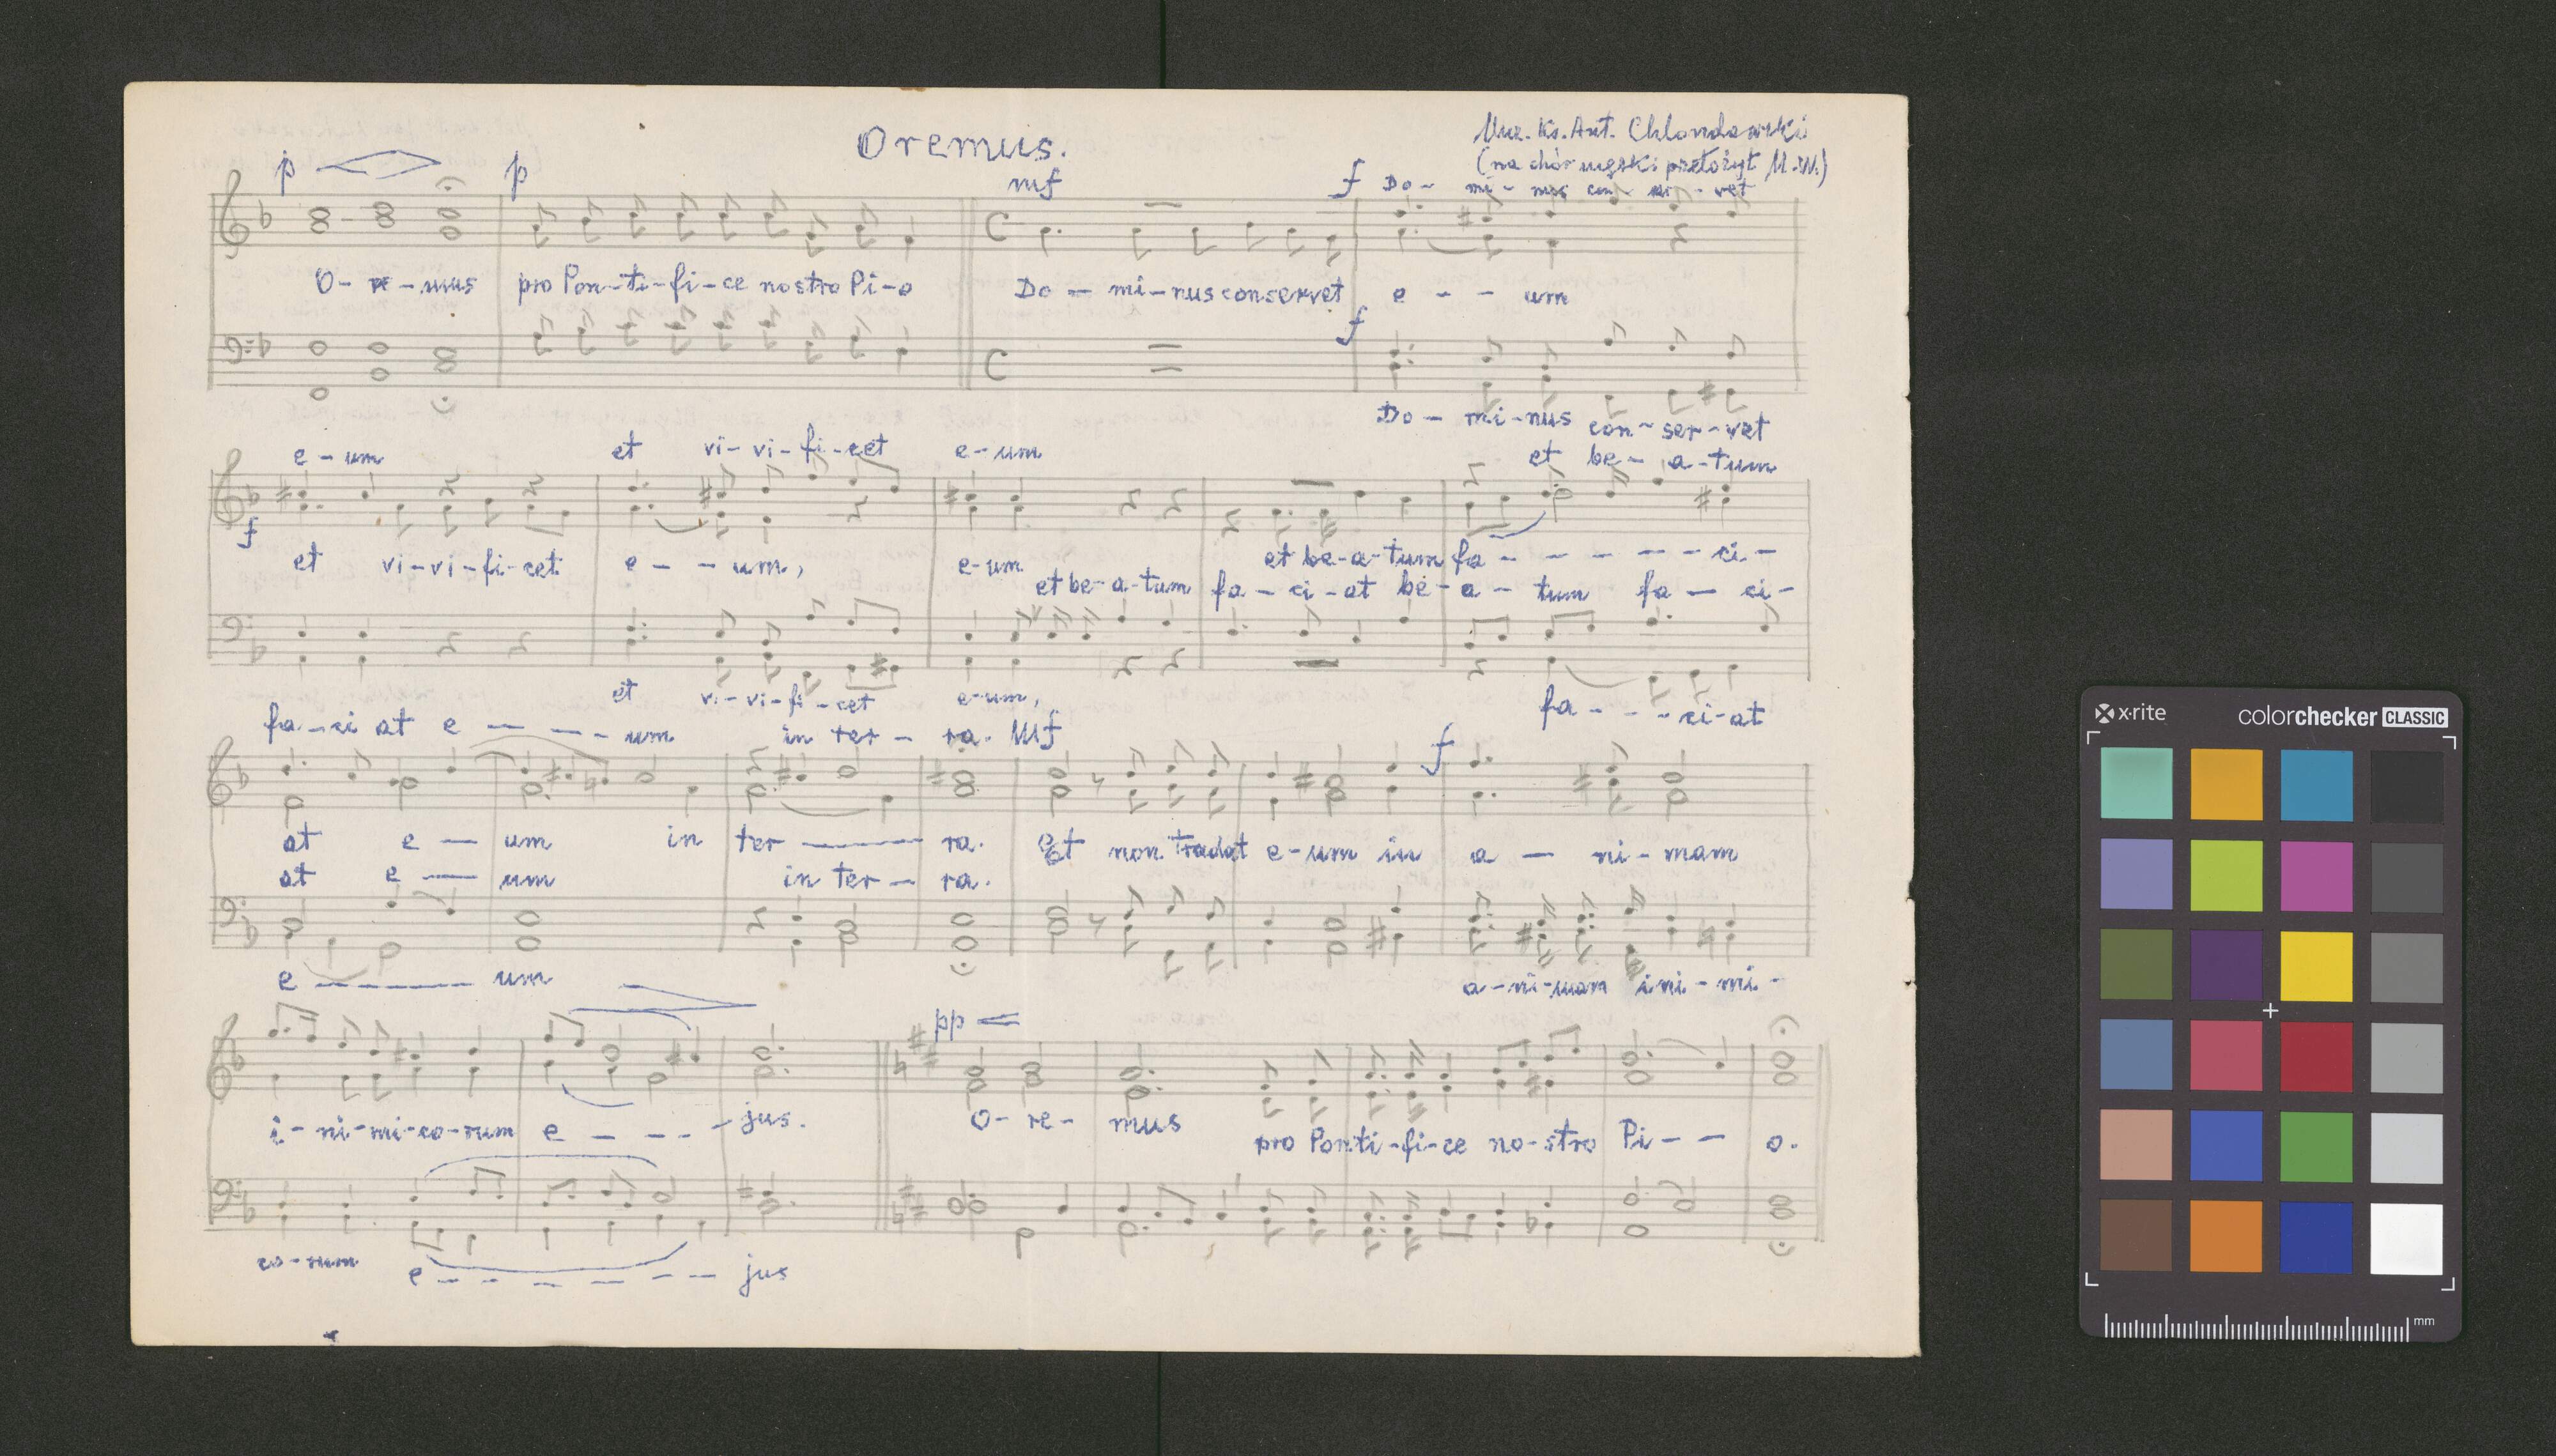 Oremus.
Muz. Ks. Ant. Chlondowski
(na chór męski przełożył M.W.)
p p mf f Do - mi - nus con - ser - vet
O - re - mus pro Pon - ti - fi - ce nostro Pi - o Do - mi - nus conservet e - - um
f
Do - mi - nus con - ser - vet
e - um et vi - vi - fi - cet e - um et be - a - tum
f
et vi - vi - fi - cet e - - um, e - um et be - a - tum fa - - - - - - ci -
et be - a - tum fa - ci - at be - a - tum fa - ci -
et vi - vi - fi - cet e - um, fa - - - ci - at
fa - ci at e - - - - um in ter - ra. Mf f
at e - um in ter - ra. Et non tradat e - um in a - ni - mam
at e - um in ter - ra.
e - - - - - - um a - ni - mam ini - mi -
pp
i - ni - mi - co - rum e - - - - jus. O - re - mus pro Ponti - fi - ce no - stro Pi - - o.
co - rum e - - - - - - - jus
x-rite colorchecker CLASSIC
mm